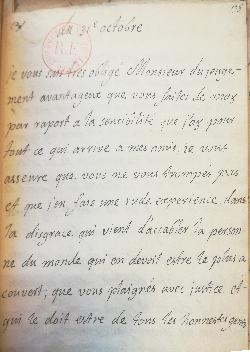 du 31e octobre
R.F.
je vous suis tres obligé Monsieur du juge-
ment avantageux que vous faites de moy
par raport a la sensibilité que j'ay pour
tout ce qui arrive a mes amis, je vous
asseure que vous ne vous trompés pas
et que j'en fais une rude experience dans
la disgrace qui vient d'accabler la person
ne du monde qui en devoit estre le plus a
couvert, que vous plaignés avec justice et
qui le doit estre de tous les honnestes gens